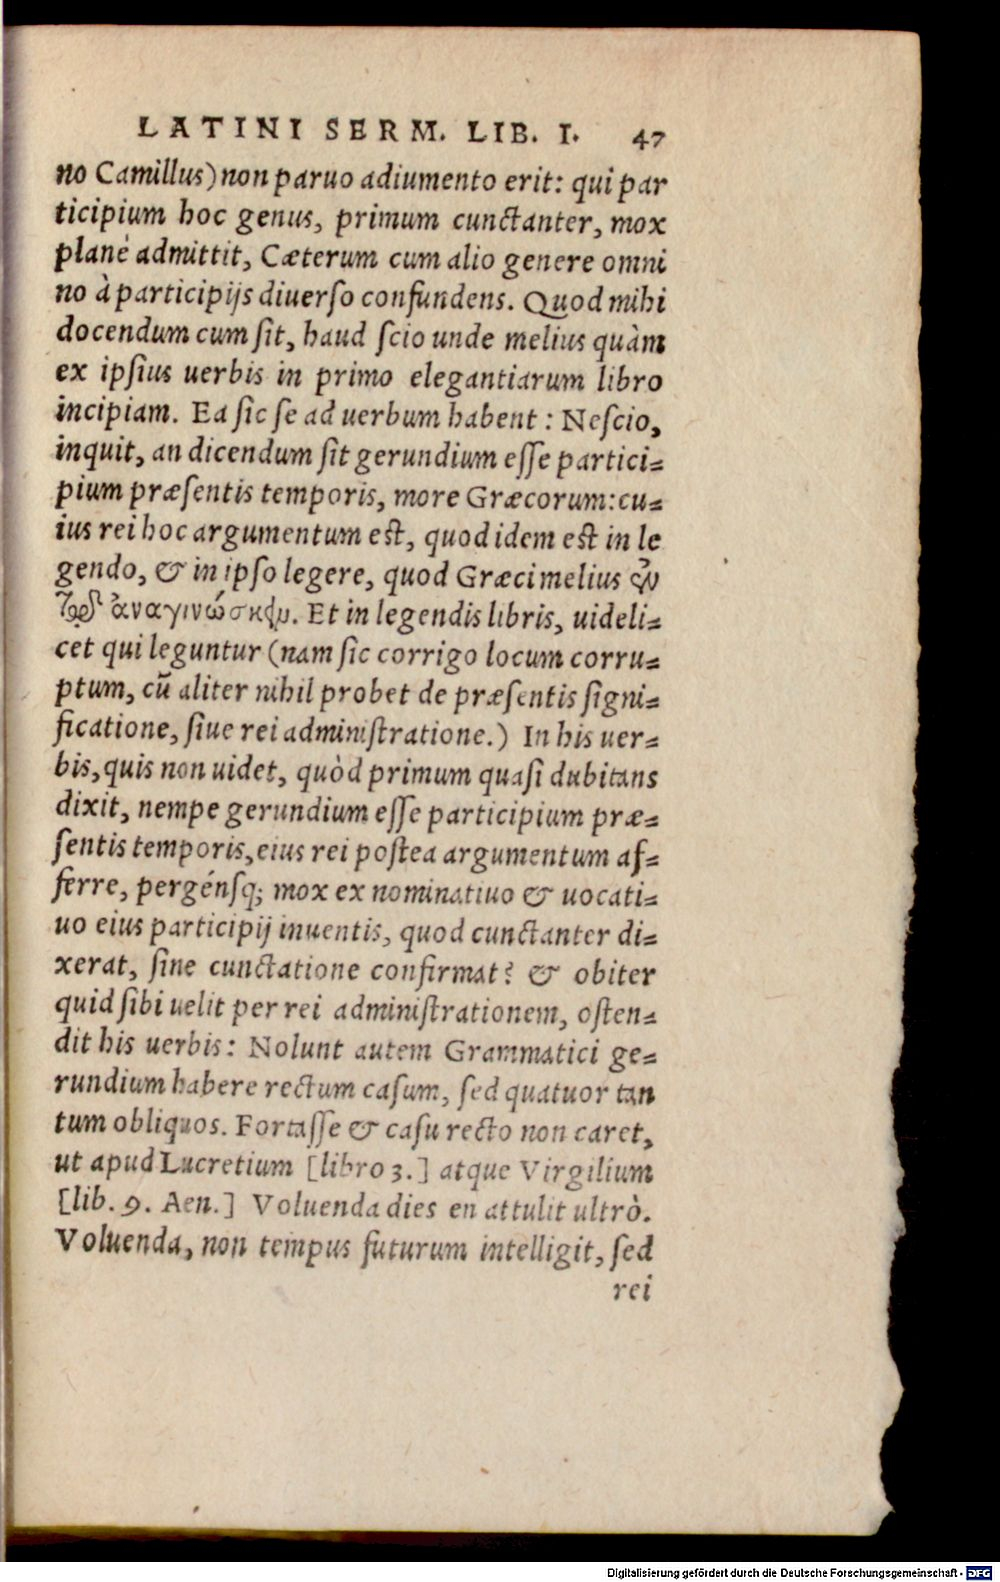 LATINI SERM. LIB. I. 47
no Camillus) non paruo adiumento erit: qui par
ticipium hoc genus, primum cunctanter, mox
planè admittit, Cæterum cum alio genere omni
no à participijs diuerſo confundens. Quod mihi
docendum cum ſit, haud ſcio unde melius quàm
ex ipſius uerbis in primo elegantiarum libro
incipiam. Ea ſic ſe ad uerbum habent : Neſcio,
inquit, an dicendum ſit gerundium eſſe partici=
pium præſentis temporis, more Græcorum: cu=
ius rei hoc argumentum eſt, quod idem eſt in le
gendo, & in ipſo legere, quod Græci melius ἐν
τῷ ἀναγινώσκειν. Et in legendis libris, uideli=
cet qui leguntur (nam ſic corrigo locum corru=
ptum, cũ aliter nihil probet de præſentis ſigni=
ficatione, ſiue rei adminiſtratione.) In his uer=
bis, quis non uidet, quòd primum quaſi dubitans
dixit, nempe gerundium eſſe participium præ=
ſentis temporis, eius rei poſtea argumentum af=
ferre, pergénſq; mox ex nominatiuo & uocati=
uo eius participij inuentis, quod cunctanter di=
xerat, ſine cunctatione confirmat? & obiter
quid ſibi uelit per rei adminiſtrationem, oſten=
dit his uerbis: Nolunt autem Grammatici ge=
rundium habere rectum caſum, ſed quatuor tan
tum obliquos. Fortaſſe & caſu recto non caret,
ut apud Lucretium [libro 3.] atque Virgilium
[lib. 9. Aen.] Voluenda dies en attulit ultrò.
Voluenda, non tempus futurum intelligit, ſed
rei
Digitalisierung gefördert durch die Deutsche Forschungsgemeinschaft - DFG